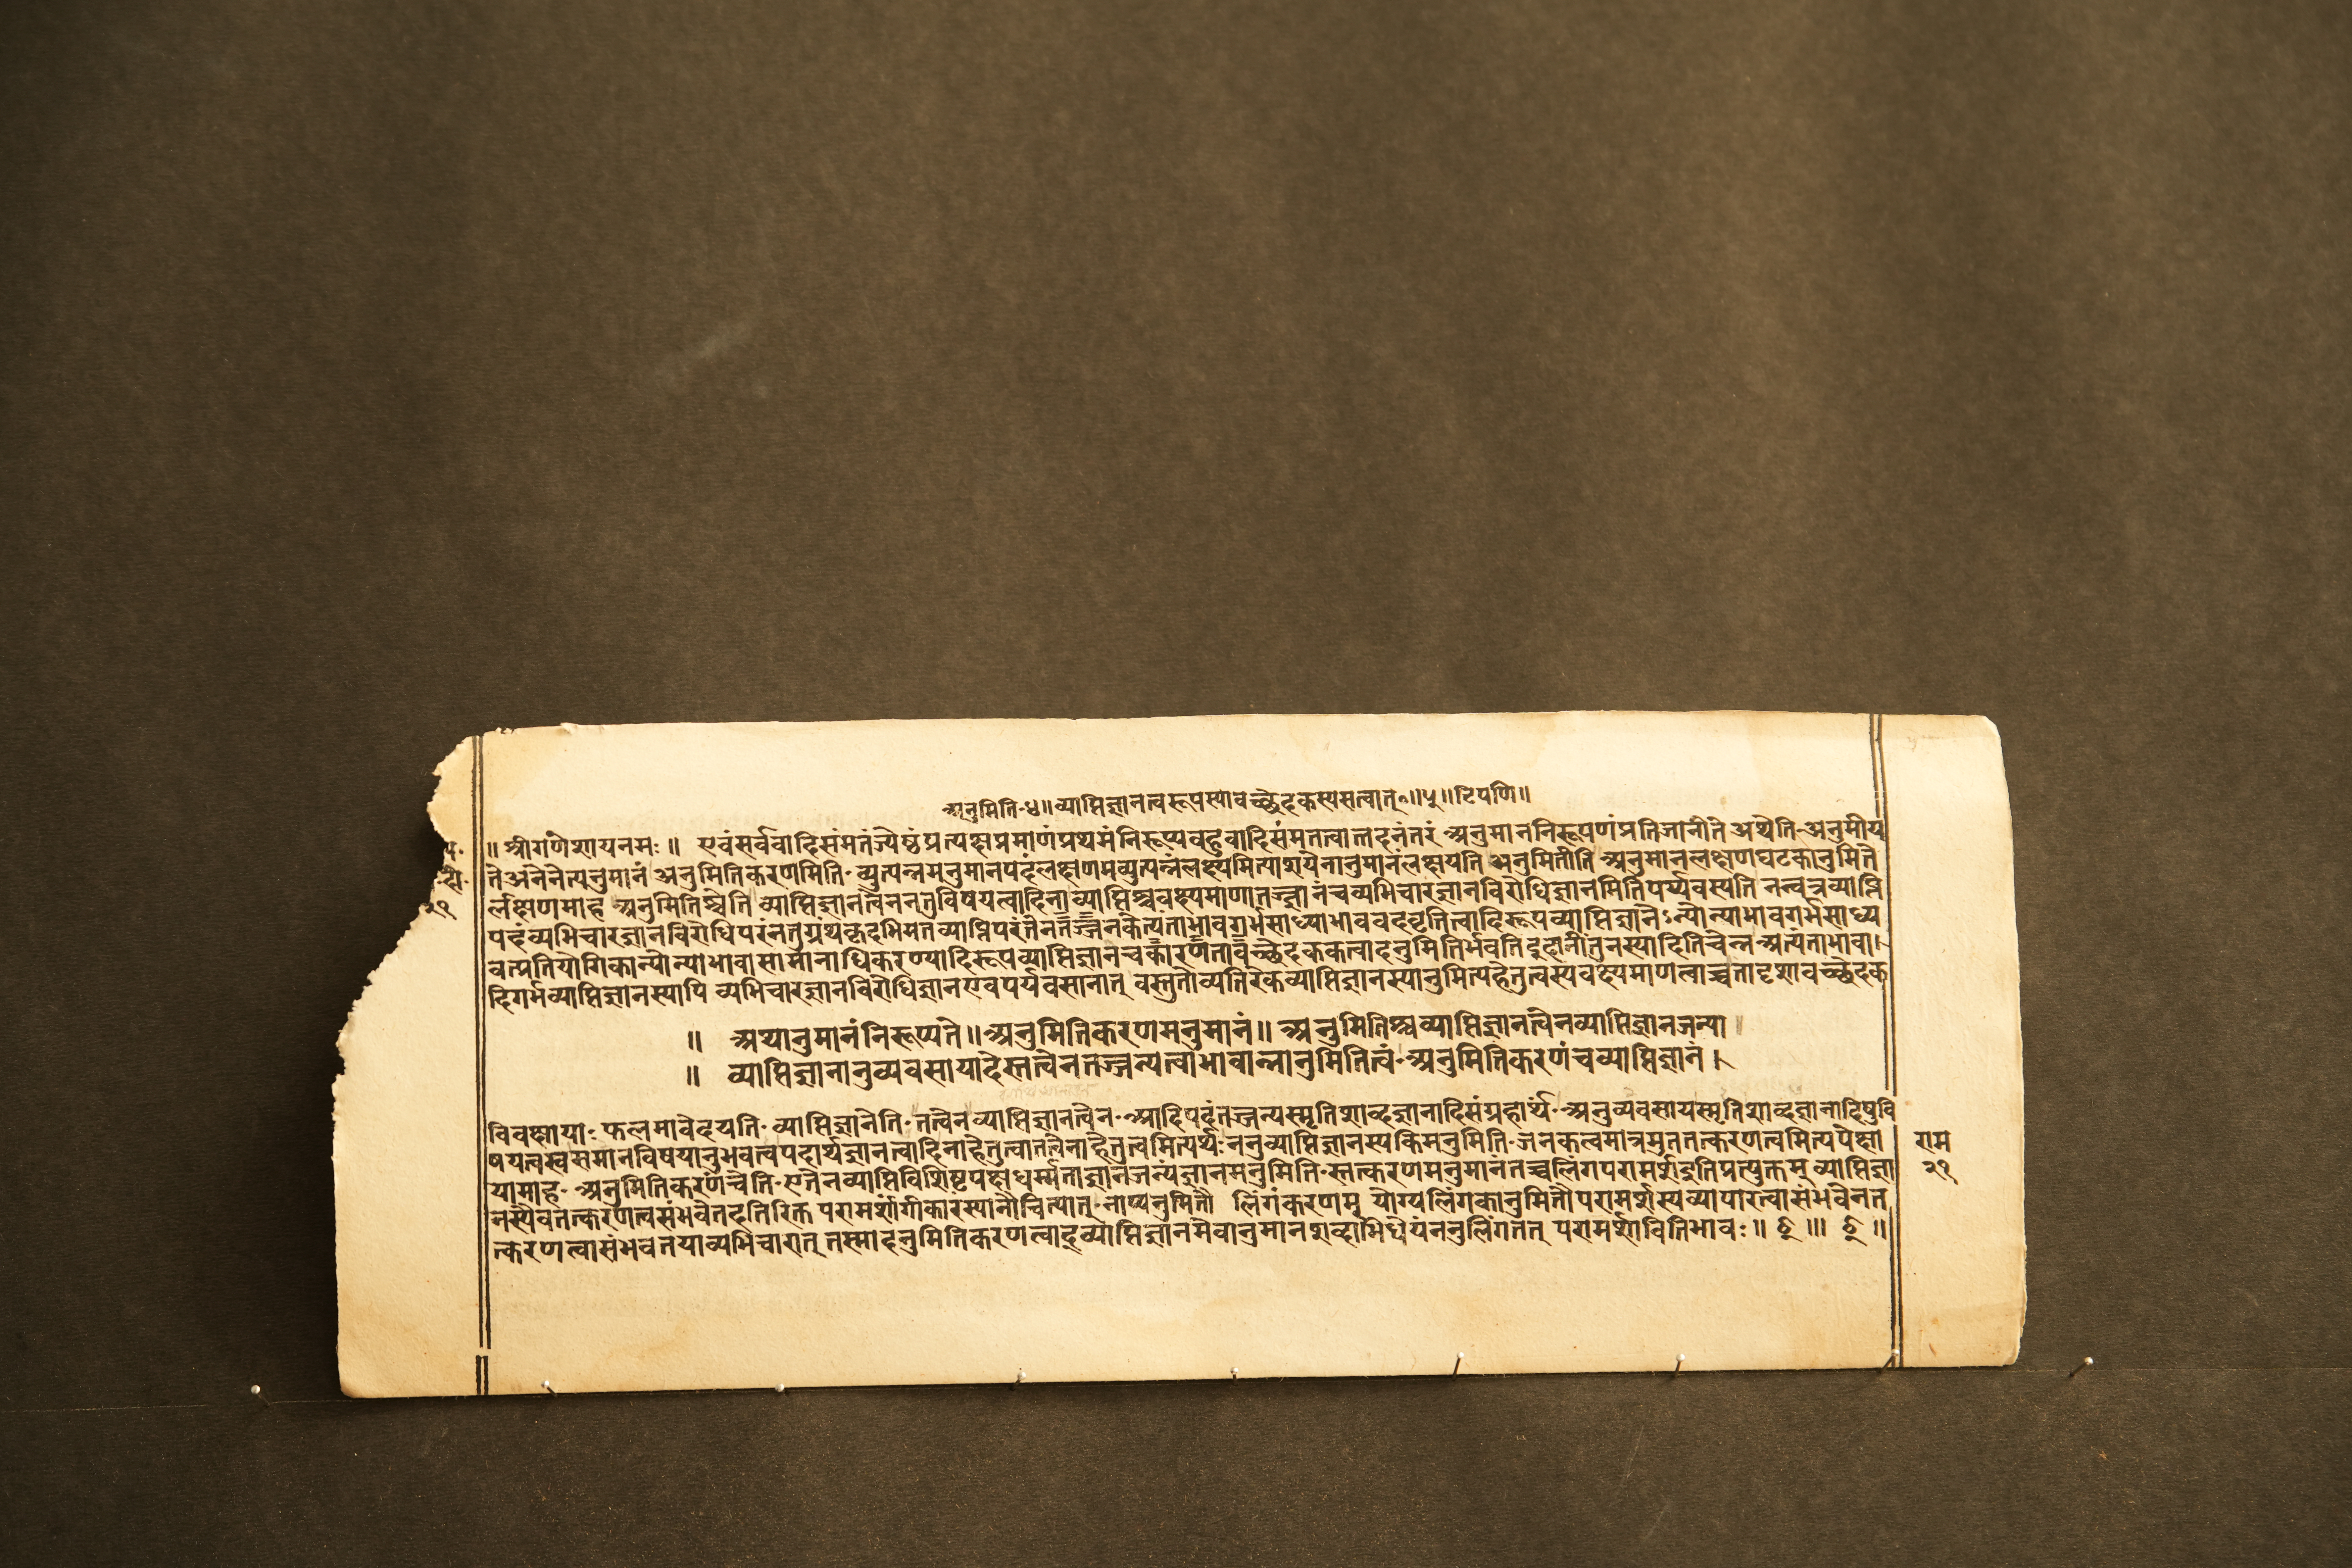 अनुमिति॰४॥व्याप्तिज्ञानत्वरूपस्यावच्छेदकस्यसत्वात्॰॥५॥टिपणि॥
॥श्रीगणेशायनमः॥ एवंसर्ववादिसंमतंज्येष्ठंप्रत्यक्षप्रमाणंप्रथमंनिरूप्यबहुवादिसंमतत्वात्तदनंतरं अनुमाननिरूपणंप्रतिजानीते अथेति॰अनुमीय
तेअनेनेत्यनुमानं अनुमितिकरणमिति॰व्युत्पन्नमनुमानपदंलक्षणमव्युत्पन्नंलक्ष्यमित्याशयेनानुमानंलक्षयति अनुमितीति अनुमानलक्षणघटकानुमिते
र्लक्षणमाह अनुमितिश्चेति व्याप्तिज्ञानत्वेननतुविषयत्वादिना व्याप्तिश्चवक्ष्यमाणातज्ज्ञानंचव्यभिचारज्ञानविरोधिज्ञानमितिपर्य्यवस्यति नत्वत्रव्याप्ति
पदंव्यभिचारज्ञानविरोधिपरंनतुग्रंथकृदभिमतव्याप्तिपरंतेनतज्जनकेत्यताभावगर्भसाध्याभाववदवृत्तित्वादिरूपव्याप्तिज्ञानेऽन्योन्याभावगर्भसाध्य
वत्प्रतियोगिकान्योन्याभावासामानाधिकरण्यादिरूपव्याप्तिज्ञानेचकारणतावच्छेदककत्वादनुमितिर्भवतिदुदानींतुनस्यादितिचेन्न अत्यंताभावा।
दिगर्भव्याप्तिज्ञानस्यापि व्यभिचारज्ञानविरोधिज्ञानएवपर्यवसानात् वस्तुतोव्यतिरेकव्याप्तिज्ञानस्यानुमित्यहेतुत्वस्यवक्ष्यमाणत्वाच्चतादृशावच्छेदक
॥ अथानुमानंनिरूप्यते॥अनुमितिकरणमनुमानं॥ अनुमितिश्चव्याप्तिज्ञानत्वेनव्याप्तिज्ञानजन्या।
॥ व्याप्तिज्ञानानुव्यवसायादेस्तत्वेनतज्जन्यत्वाभावान्नानुमितित्वं॰अनुमितिकरणंचव्याप्तिज्ञानं।
विवक्षायाः फलमावेदयति॰ व्याप्तिज्ञानेति॰तत्वेनव्याप्तिज्ञानत्वेन॰आदिपदंतज्जन्यस्मृतिशाब्दज्ञानादिसंग्रहार्थ्यं॰अनुव्यवसायस्मृतिशाब्दज्ञानादिषुवि
षयत्वस्वसमानविषयानुभवत्वपदार्थज्ञानत्वादिनाहेतुत्वातत्वेनाहेतुत्वमित्यर्थः ननुव्याप्तिज्ञानस्यकिमनुमिति॰जनकत्वमात्रमुततत्करणत्वमित्यपेक्षा
यामाह॰ अनुमितिकरणंचेति॰एतेनव्याप्तिविशिष्टपक्षधर्म्मताज्ञानजन्यंज्ञानमनुमिति॰स्तत्करणमनुमानंतच्चलिंगपरामर्शइतिप्रत्युक्तम् व्याप्तिज्ञा
नस्यैवतत्करणत्वसंभवेतदतिरिक्त परामर्शांगीकारस्यानौचित्यात्॰नाप्यनुमितौ लिंगंकरणम् योग्यलिंगकानुमितौपरामर्शस्यव्यापारत्वासंभवेनत
त्करणत्वासंभवतयाव्यभिचारात् तस्मादनुमितिकरणत्वाद्व्याप्तिज्ञानमेवानुमानशब्दाभिधेयंननुलिंगतत् परामर्शावितिभावः॥ छ् ॥। छ् ॥
राम
२१